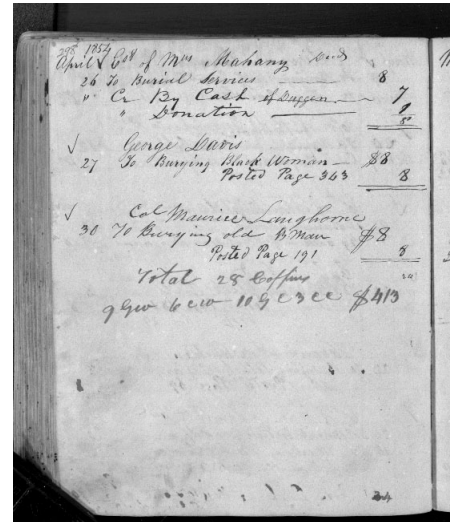 298 1854
April √ Est of Mrs Mahany Decd
26 To Burial Services 8
" Cr By Cash of Duggan 7
" Donation 1
8
√ George Davis
27 To Burying Black Woman $8
Posted Page 343 8
√ Col Maurice Langhorne
30 To Burying old B Man $8
Posted Page 191 8
24
Total 28 Coffins
9 G W 6 C W 10 G C 3 C C $413